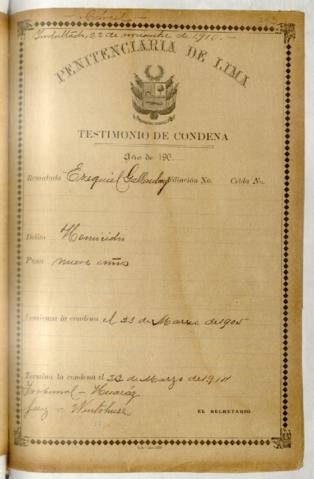 Indultado, 22 de noviembre de 1910.—
PENITENCIARIA DE LIMA
TESTIMONIO DE CONDENA
Año de 190
Rematado Ezequiel Filiación No. Celda No.
Delito Homicidio
Pena nueve años
Comienza la condena el 23 de Marzo de 1905
Termina la condena el 23 de Marzo de 1914
Tribunal — Huaráz
Juez —
EL SECRETARIO